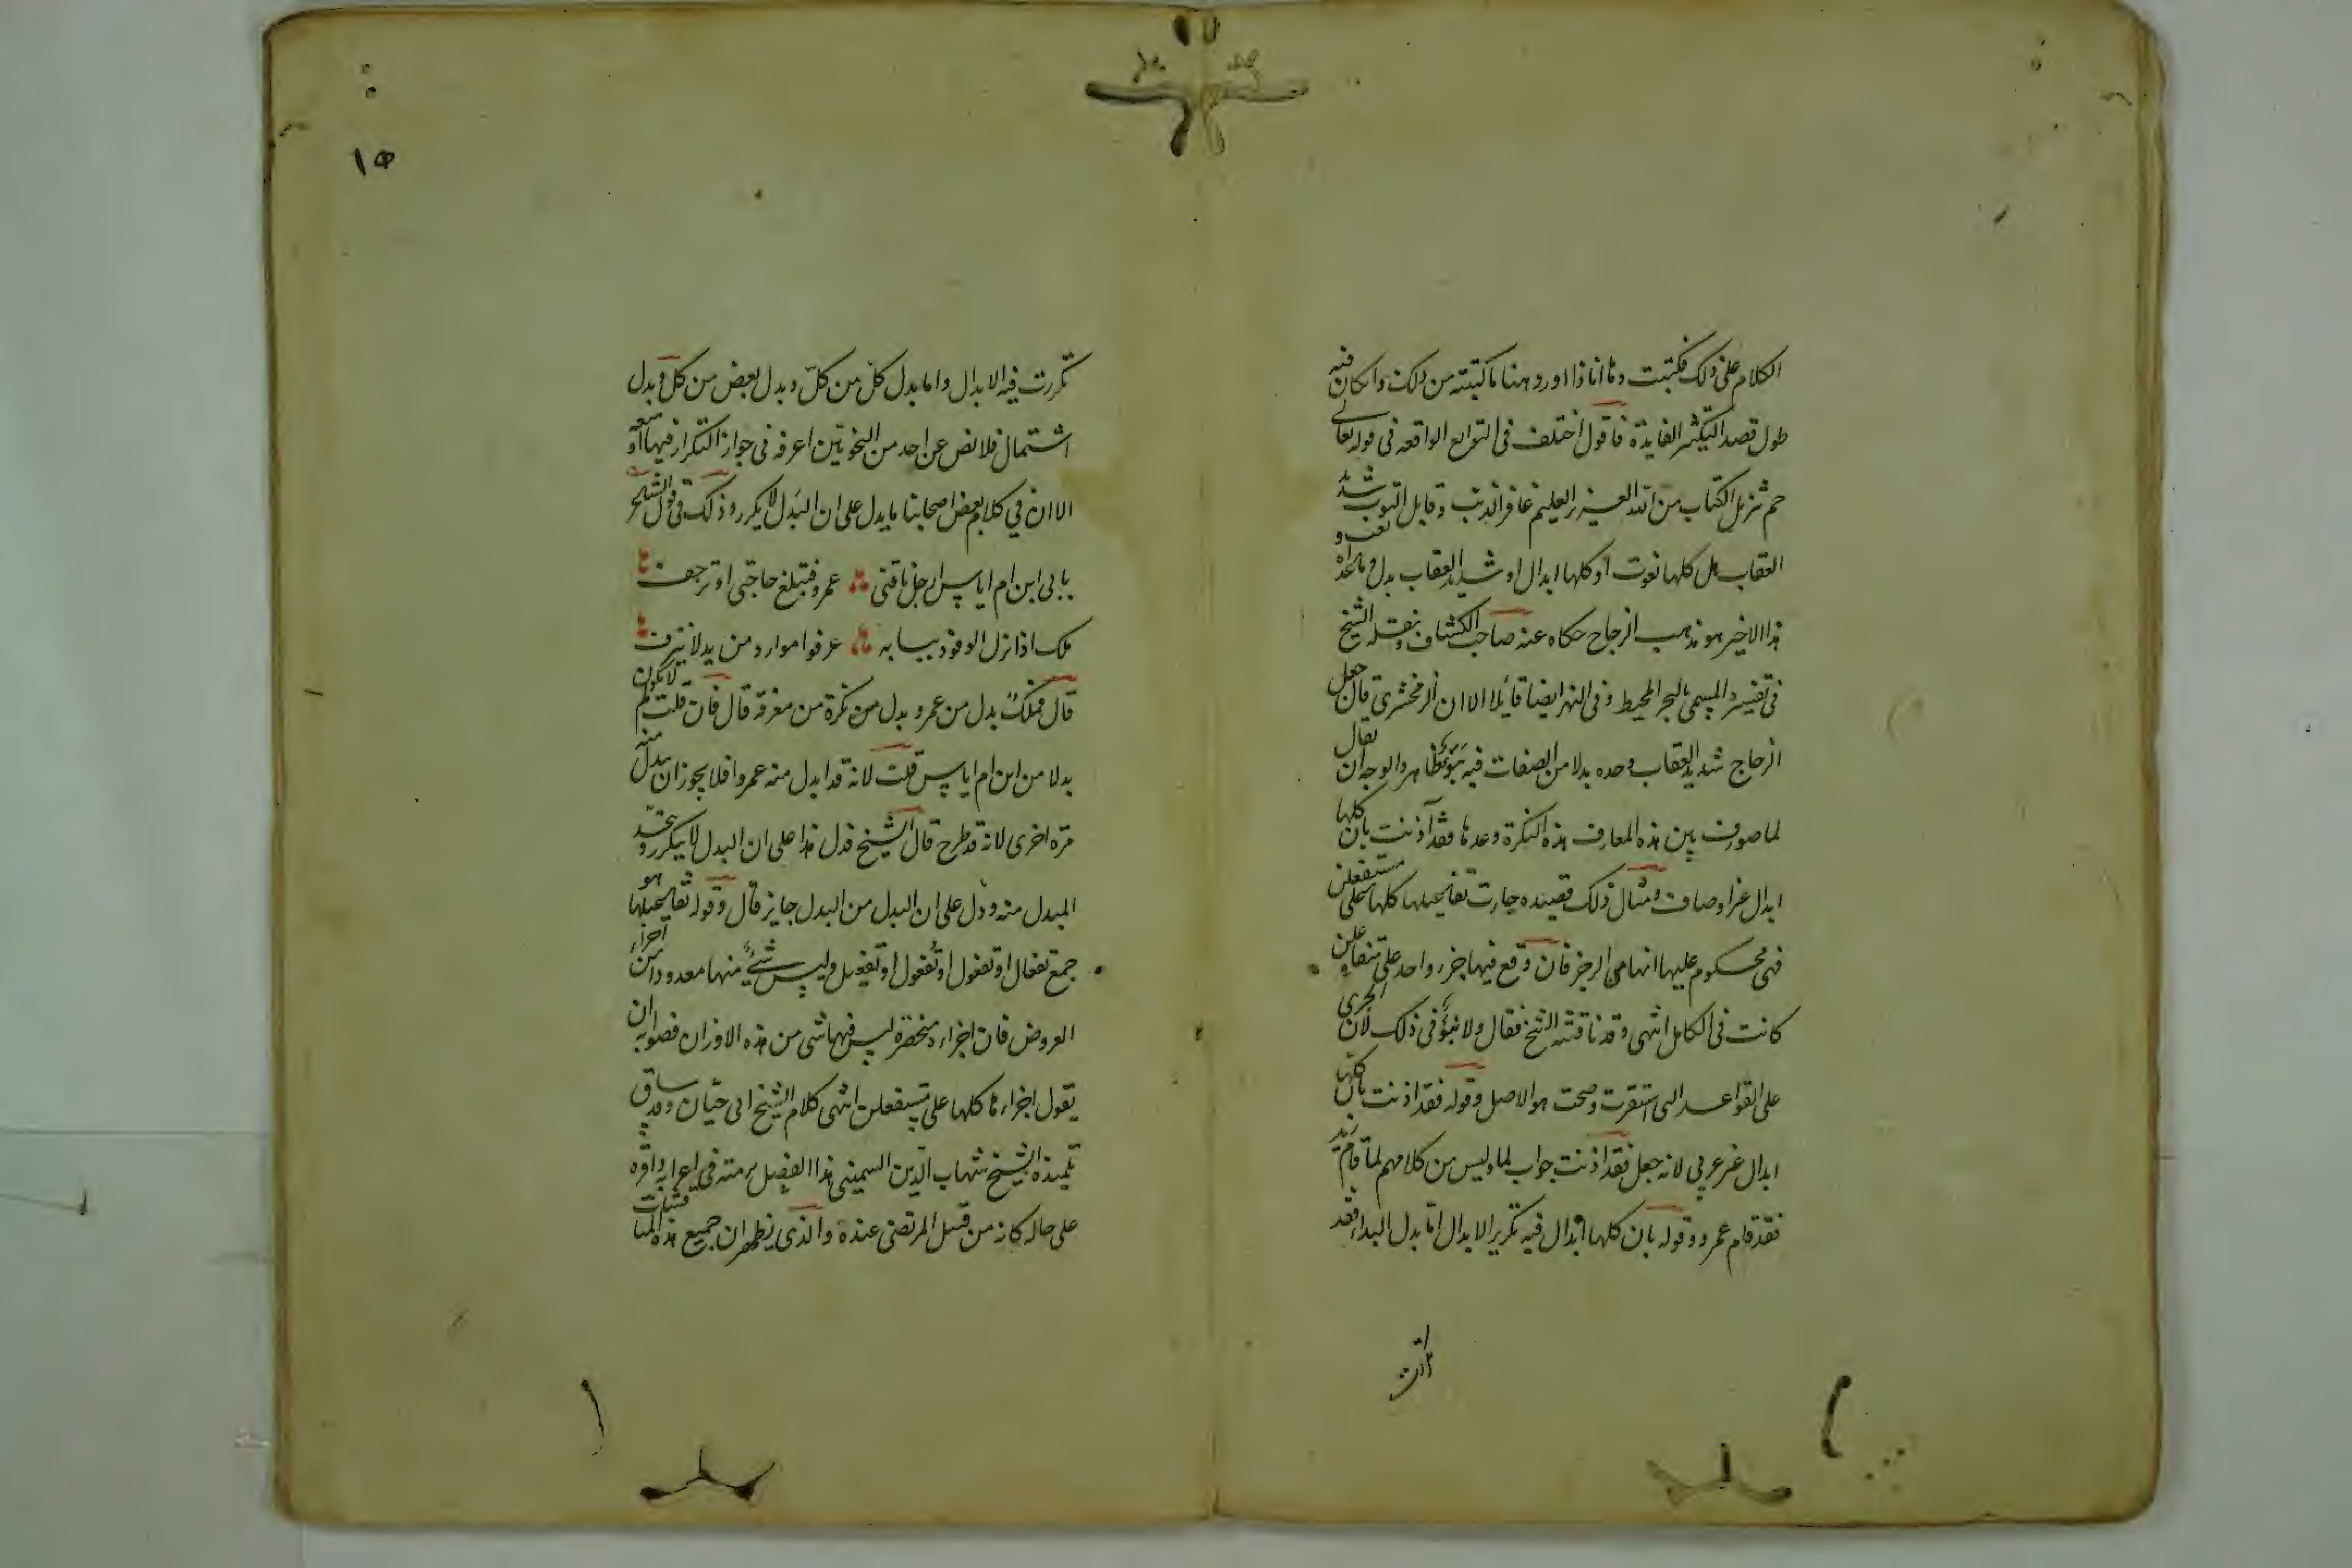 الكلام على ذلك فكتبت وها انا ذا اورد هنا ما كتبته من ذلك وان كان فيه
طول قصدا لتكثير الفايدة فاقول اختلف في التوابع الواقعه في قوله تعالى
حم تنزيل الكتاب من الله العزيز العليم غافر الذنب وقابل التوب شديد
العقاب هل كلها نعوت او كلها ابدال او شديد العقاب بدل وما عداه نعت و
هذا الاخير هو مذهب الزجاج حكاه عنه صاحب الكشاف ونقله الشيخ
في تفسيره المسمى بالبحر المحيط وفي النهر ايضا قايلا الا ان الزمخشري قال جعل
الزجاج شديد العقاب وحده بدلا من الصفات فيه نبوّ ظاهر والوجه ان يقال
لما صودف بين هذه المعارف هذه النكرة وحدها فقد آذنت بان كلها
ابدال غير اوصاف ومثال ذلك قصيده جاءت تفاعيلها كلها على مستفعلن
فهي محكوم عليها انها من الرجز فان وقع فيها جزء واحد على متفاعلن
كانت في الكامل انتهى وقد ناقشه الشيخ فقال ولا نبوّ في ذلك لان الجري
على القواعد التى استقرت وصحت هو الاصل وقوله فقد اذنت بان كلها
ابدال غير عربي لانه جعل فقد اذنت جواب لما وليس من كلامهم لما قام زيد
فقد قام عمرو وقوله بان كلها ابدال فيه تكرير الابدال امّا بدل البداء فقد
تكررت فيه الابدال واما بدل كلّ من كلّ وبدل بعض من كل وبدل
اشتمال فلا نص عن احد من النحويّين اعرفه في جواز التكرار فيها او منعه
الا ان في كلام بعض اصحابنا ما يدل على ان البدل لا يكرر وذلك في قول الشاعر
بابي ابن ام اياس ارحل ناقتي عمرو فتبلغ حاجتي او ترجف
ملك اذا نزل الوفود ببابه عرفوا موارد من يد لا تنزف
قال فملكٌ بدل من عمرو بدل من نكرة من معرفة قال فان قلت لم لا يكون
بدلا من ابن ام اياس قلت لانه قد ابدل منه عمروا فلا يجوز ان يبدل منه
مرّة اخرى لانه قد طرح قال الشيخ فدل هذا على ان البدل لا يتكرر ويتحد
المبدل منه ودل على ان البدل من البدل جايز قال وقوله تفاعيلها هو
جمع تفعال او تفعول او تُفعول او تفعيل وليس شئٌ منها معدودا من اجزاء
العروض فان اجزاءه منحصرة ليس فيها شى من هذه الاوزان فصوابه ان
يقول اجزاءها كلها على مستفعلن انتهى كلام الشيخ ابى حيّان وقد ساق
تلميذه الشيخ شهاب الدّين السمين هذا الفصل برمته في اعرابه واقره
على حاله كانه من قبيل المرتضى عنده والذي يظهر ان جميع هذه المناقشات